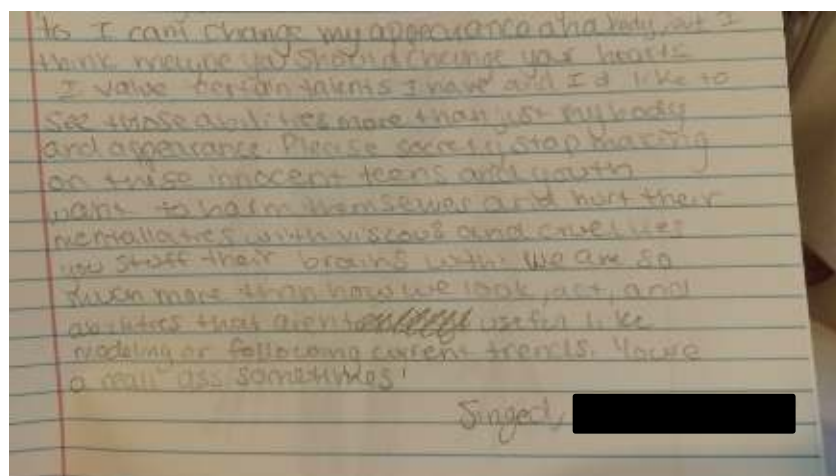 to I can't change my appearance and body, but I
think maybe you should change your hearts
I value certain talents I have and I'd like to
see those abilities more than just my body
and appearance. Please society stop making
these innocent teens and youth
want to harm themselves and hurt their
mentallaties with viscous and cruel lies
you stuff their brains with. We are so
much more than how we look, act, and
abilities that arent useful like
modeling or following current trends. Youre
a real ass sometimes!
Singed,